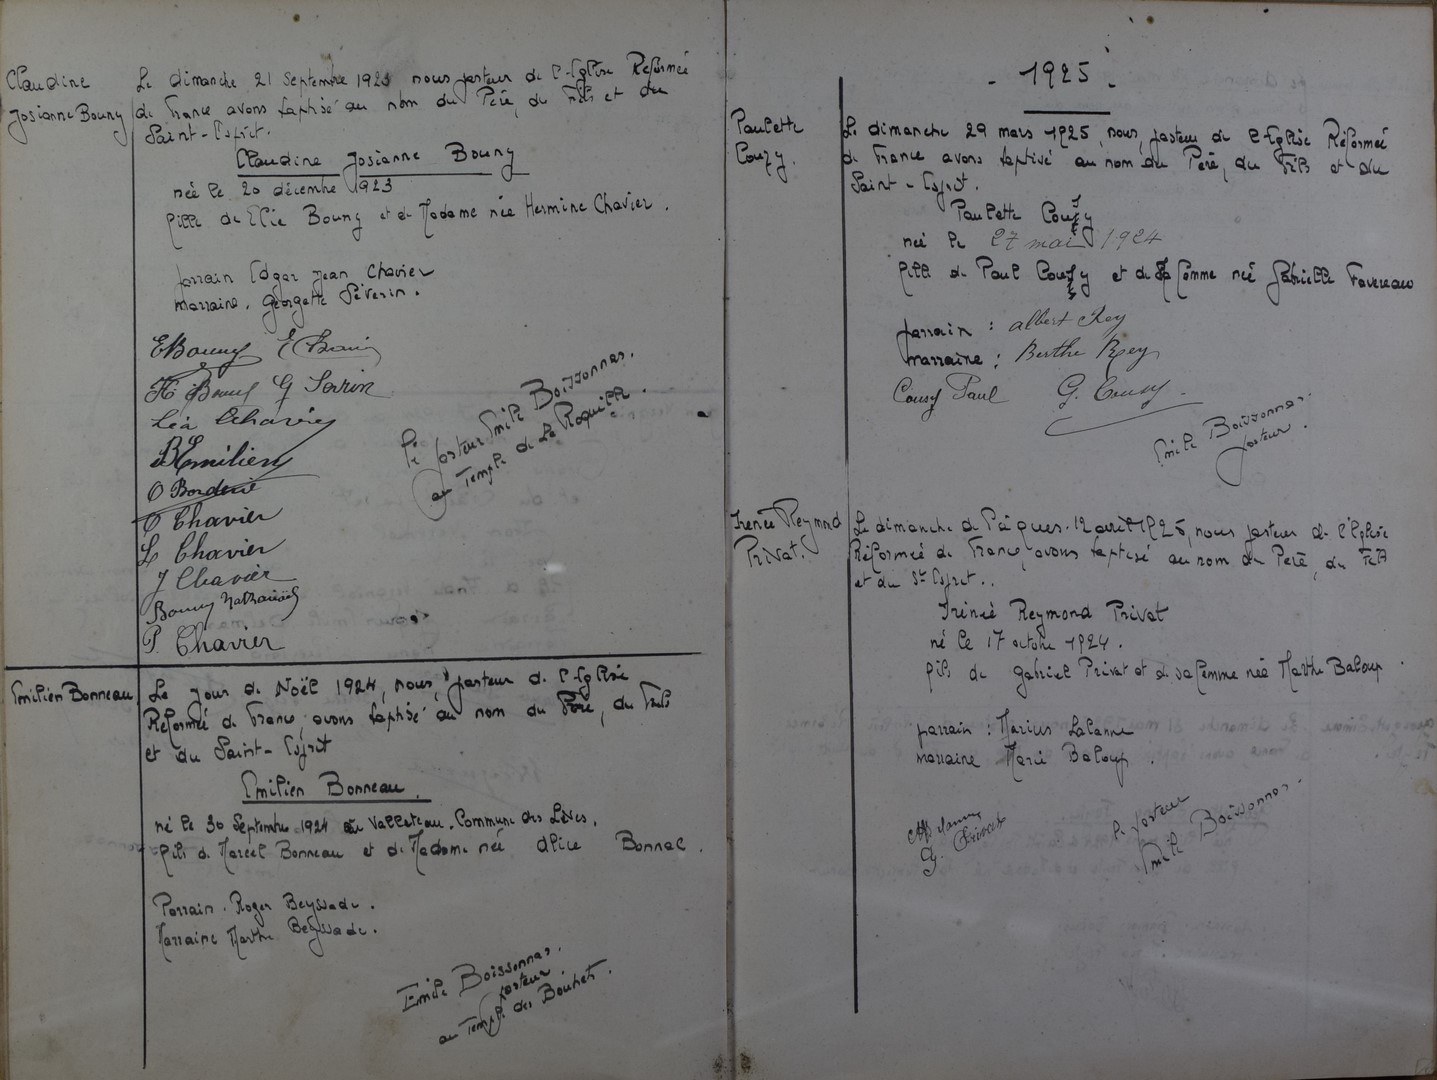 Claudine
Josianne Bouny
Le dimanche 21 Septembre 1923 nous pasteur de l'Eglise Réformée
de France avons baptisé au nom du Père, du Fils et du
Saint-Esprit.
Claudine Josianne Bouny
née le 20 décembre 1923
fille de Elie Bouny et de Madame née Hermine Chavier.
parrain Edgar Jean Chavier
marraine. Georgette Séverin.
EBouny E Chavier
H Bouny G Severin
Léa Chavier
B Emilien
O Borderie
O Chavier
L Chavier
J Chavier
Bouny Nathanaël
P. Chavier
Le pasteur Emile Boissonnas.
au Temple de La Roquille.
Emilien Bonneau
Le jour de Noël 1924, nous, pasteur de l'Eglise
Réformée de France, avons baptisé au nom du Père, du Fils
et du Saint-Esprit
Emilien Bonneau.
né le 30 Septembre 1924 au Valleteau. Commune des Lèves.
fils de Marcel Bonneau et de Madame née Alice Bonnac.
Parrain. Roger Beyssade.
Marraine Marthe Beyssade.
Emile Boissonnas.
pasteur.
au Temple des Bouhets.
- 1925 -
Paulette
Couzy.
Le dimanche 29 mars 1925, nous, pasteur de l'Eglise Réformée
de France avons baptisé au nom du Père, du Fils et du
Saint-Esprit.
Paulette Couzy
née le 27 mai 1924
fille de Paul Couzy et de sa femme née Gabrielle Favereau
parrain : Albert Rey
marraine : Berthe Rey
Cousy Paul G. Cousy.
Emile Boissonnas.
pasteur.
Irénée Reymond
Privat.
Le dimanche de Pâques. 12 avril 1925, nous pasteur de l'Eglise
Réformée de France, avons baptisé au nom du Père, du Fils
et du St Esprit..
Irénée Reymond Privat
né le 17 octobre 1924.
fils de Gabriel Privat et de sa femme née Marthe Baloup.
parrain : Marius Lalanne
marraine Marie Baloup.
G. Privat
le pasteur
Emile Boissonnas.